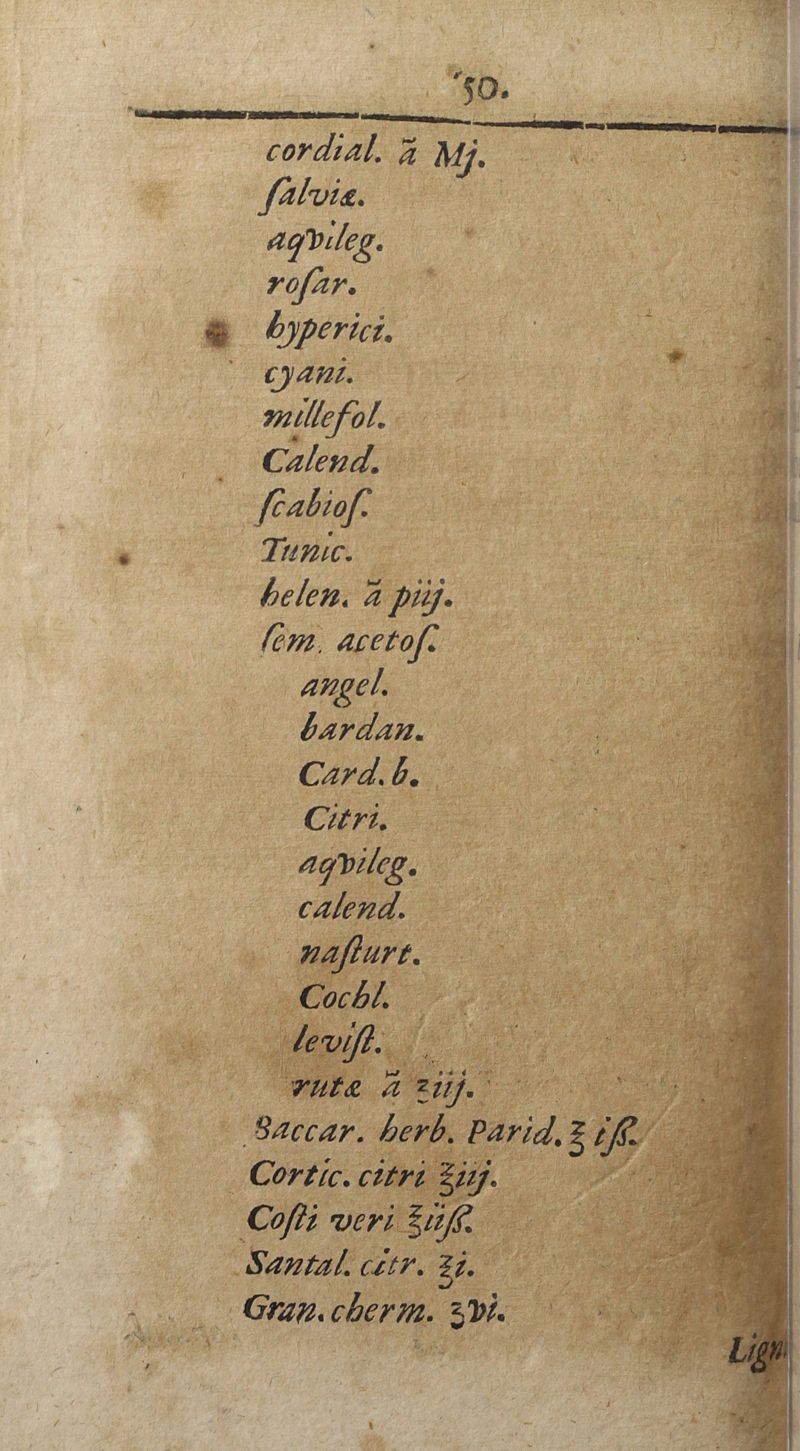 50.
cordial. ā Mj.
ſalviæ.
aqvileg.
roſar.
hyperici.
cyani.
millefol.
Calend.
ſcabioſ.
Tunic.
helen. ā piij.
ſem. acetoſ.
angel.
bardan.
Card. b.
Citri.
aqvileg.
calend.
naſturt.
Cochl.
leviſt.
rutæ ā ʒiij.
Baccar. herb. Parid. ℥ iß.
Cortic. citri ℥iij.
Coſti veri ℥iiß.
Santal. citr. ℥i.
Gran. cherm. ʒvi.
Lign